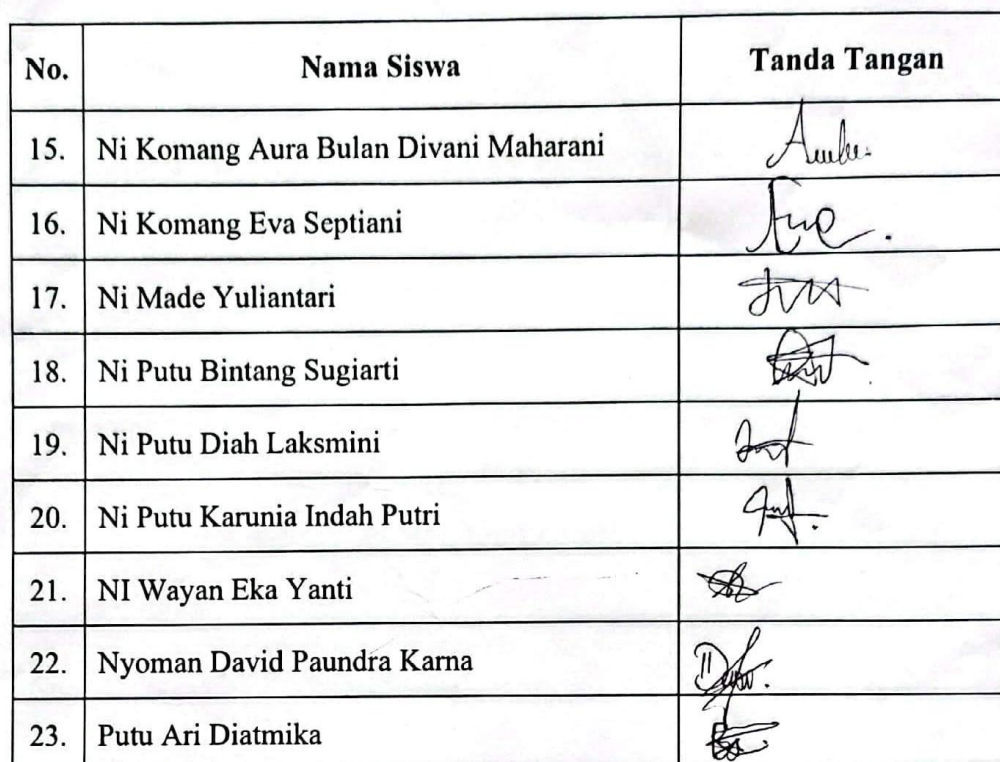 No. Nama Siswa Tanda Tangan
15. Ni Komang Aura Bulan Divani Maharani
16. Ni Komang Eva Septiani
17. Ni Made Yuliantari
18. Ni Putu Bintang Sugiarti
19. Ni Putu Diah Laksmini
20. Ni Putu Karunia Indah Putri
21. NI Wayan Eka Yanti
22. Nyoman David Paundra Karna
23. Putu Ari Diatmika